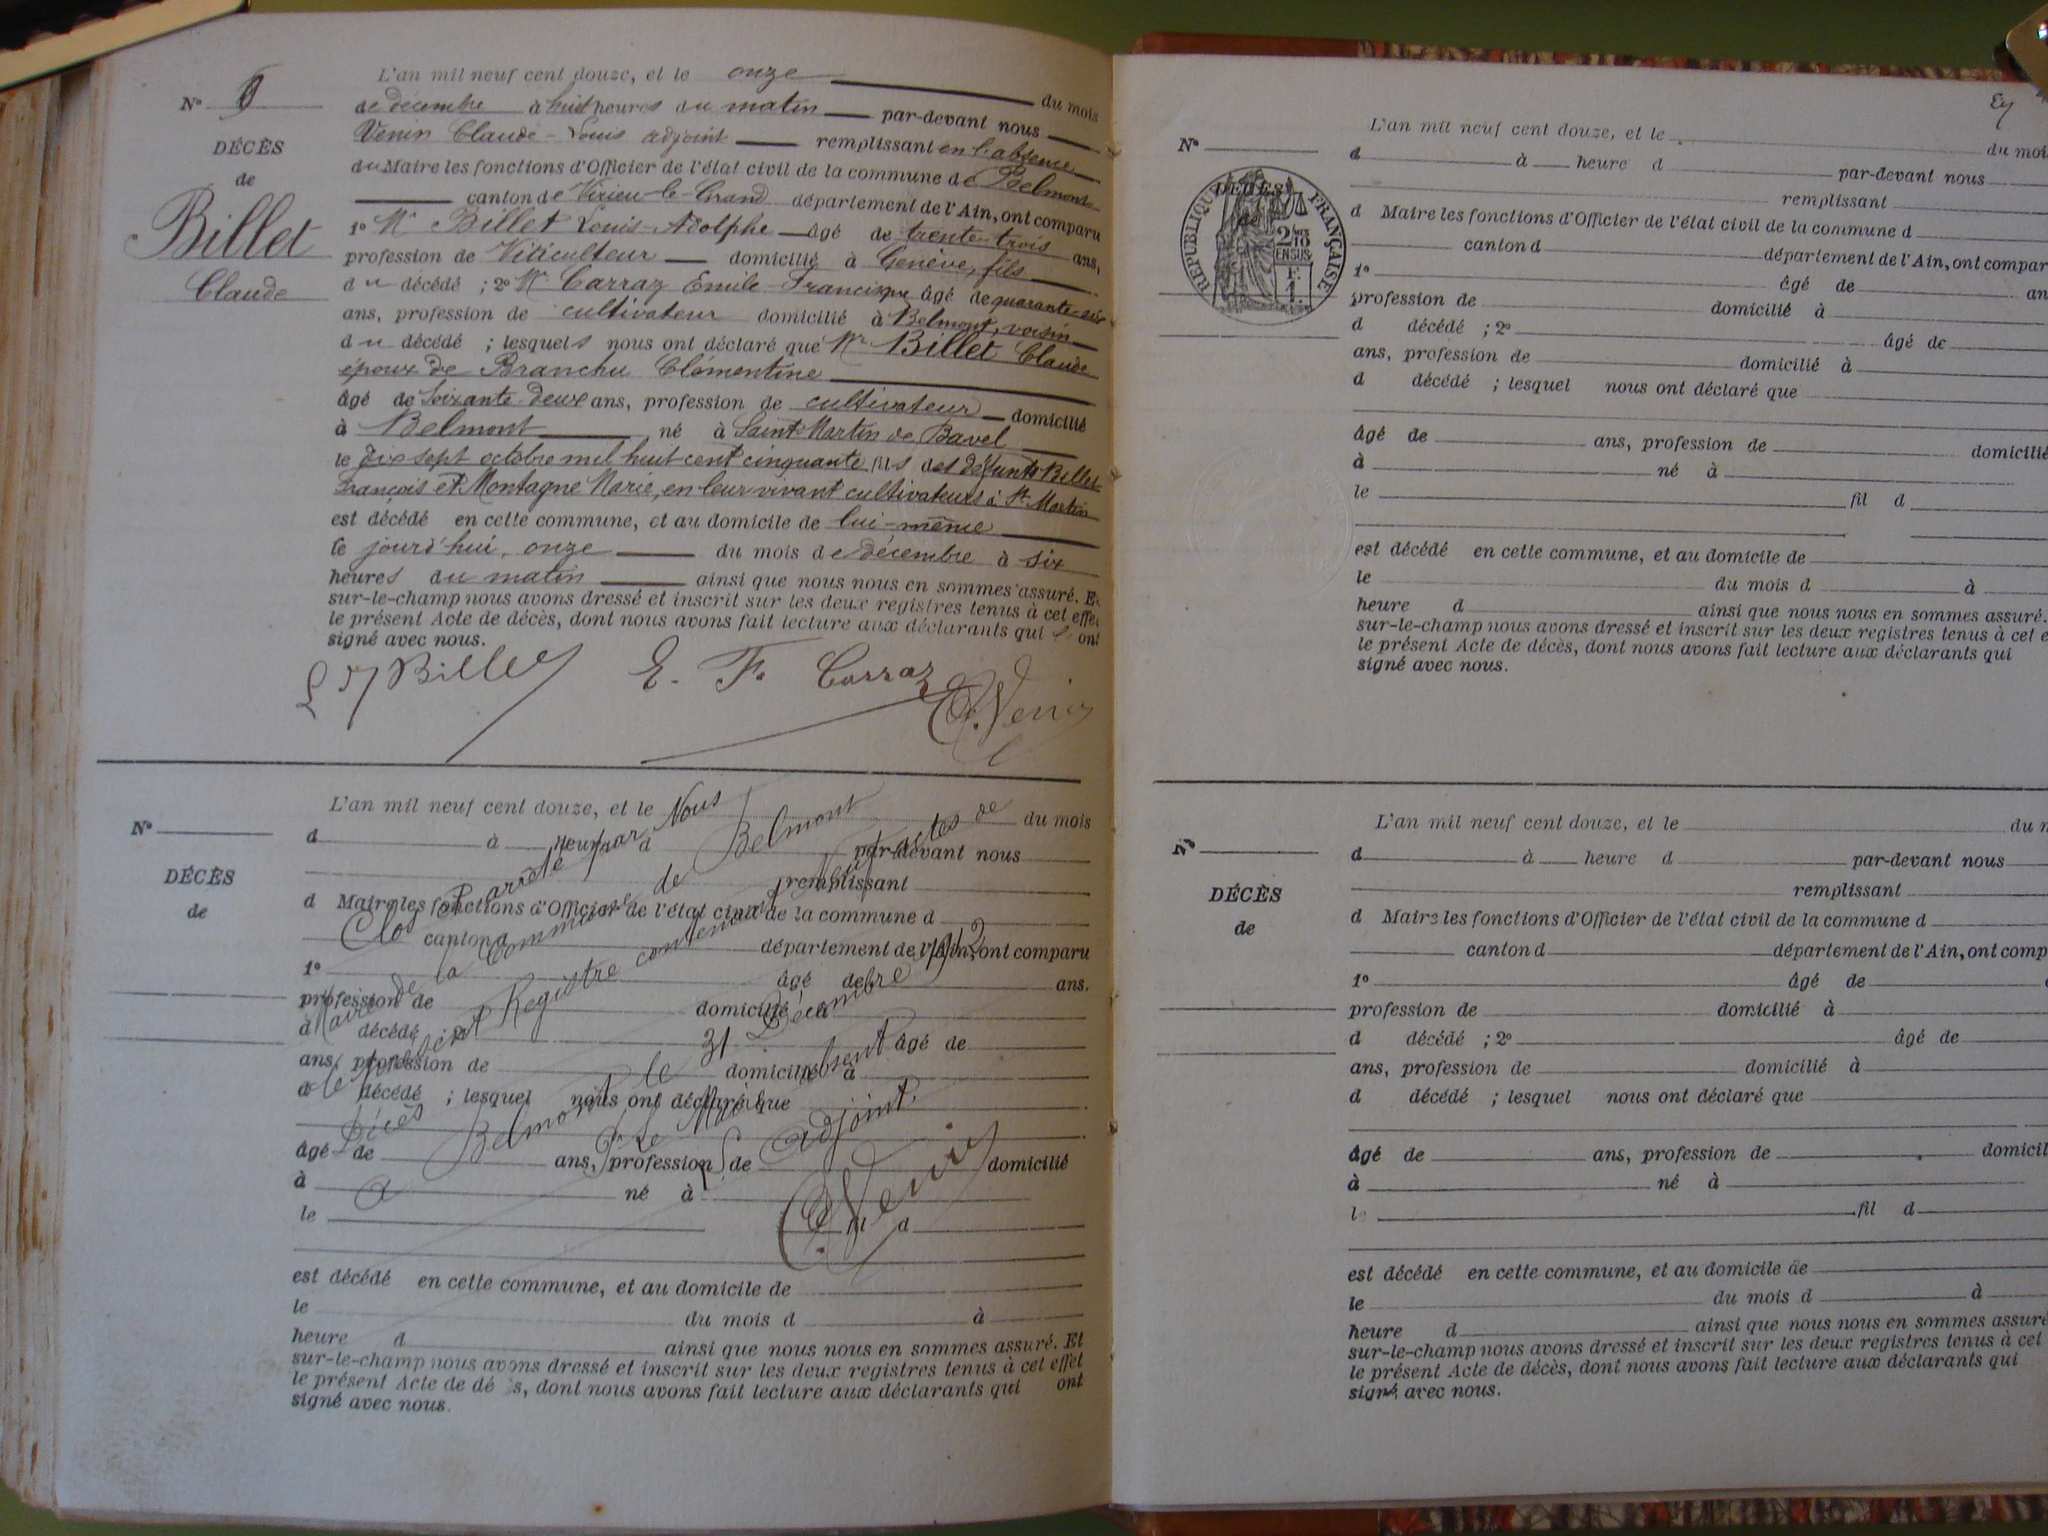 L'an mil neuf cent douze, et le onze du mois
N° 
de décembre à huit heures du matin par-devant nous
Venin Claude-Louis adjoint remplissant en l'absence
DÉCÈS
du Maire les fonctions d'Officier de l'état civil de la commune de Belmont
de
canton de Virieu-le-Grand département de l'Ain, ont comparu
Billet
1° Mr Billet Louis-Adolphe âgé de trente-trois ans,
profession de Viticulteur domicilié à Genève, fils
Claude
du décédé ; 2° Mr Carraz Emile-Francisque âgé de quarante-six
ans, profession de cultivateur domicilié à Belmont, voisin
du décédé ; lesquels nous ont déclaré que Mr Billet Claude
époux de Branchu Clémentine
âgé de Soixante-deux ans, profession de cultivateur domicilié
à Belmont né à Saint-Martin de Bavel
le dix sept octobre mil huit cent cinquante fils des défunts Billet
François et Montagne Marie, en leur vivant cultivateurs à St Martin
est décédé en cette commune, et au domicile de lui-même
le jourd'hui, onze du mois de décembre à six
heures du matin ainsi que nous nous en sommes assuré. Et
sur-le-champ nous avons dressé et inscrit sur les deux registres tenus à cet effet
le présent Acte de décès, dont nous avons fait lecture aux déclarants qui ont
signé avec nous.
Billet E. F. Carraz C. Venin
L'an mil neuf cent douze, et le du mois
N°
d à heure d par-devant nous
remplissant
DÉCÈS
de
d Maire les fonctions d'Officier de l'état civil de la commune d
canton d département de l'Ain, ont comparu
1° âgé de ans.
profession de domicilié à
d décédé ; 2° âgé de
ans, profession de domicilié à
d décédé ; lesquel nous ont déclaré que
âgé de ans, profession de domicilié
à né à
le fil d
est décédé en cette commune, et au domicile de
le du mois d à
heure d ainsi que nous nous en sommes assuré. Et
sur-le-champ nous avons dressé et inscrit sur les deux registres tenus à cet effet
le présent Acte de décès, dont nous avons fait lecture aux déclarants qui ont
signé avec nous.
Clos et arrêté par Nous
Maire de la Commune de Belmont
le présent Registre contenant actes de
Décès
Belmont le 31 Décembre 1912
P. Le Maire absent
L'adjoint.
C. Venin
L'an mil neuf cent douze, et le du mois
N°
d à heure d par-devant nous
remplissant
DÉCÈS
RÉPUBLIQUE FRANÇAISE
2/10 EN SUS
d Maire les fonctions d'Officier de l'état civil de la commune d
canton d département de l'Ain, ont compar
1° âgé de an
profession de domicilié à
d décédé ; 2° âgé de
ans, profession de domicilié à
d décédé ; lesquel nous ont déclaré que
âgé de ans, profession de domicilié
à né à
le fil d
est décédé en cette commune, et au domicile de
le du mois d à
heure d ainsi que nous nous en sommes assuré.
sur-le-champ nous avons dressé et inscrit sur les deux registres tenus à cet e
le présent Acte de décès, dont nous avons fait lecture aux déclarants qui
signé avec nous.
L'an mil neuf cent douze, et le du m
N°
d à heure d par-devant nous
remplissant
DÉCÈS
de
d Maire les fonctions d'Officier de l'état civil de la commune d
canton d département de l'Ain, ont comp
1° âgé de
profession de domicilié à
d décédé ; 2° âgé de
ans, profession de domicilié à
d décédé ; lesquel nous ont déclaré que
âgé de ans, profession de domicil
à né à
le fil d
est décédé en cette commune, et au domicile de
le du mois d à
heure d ainsi que nous nous en sommes assuré
sur-le-champ nous avons dressé et inscrit sur les deux registres tenus à cet
le présent Acte de décès, dont nous avons fait lecture aux déclarants qui
signé avec nous.